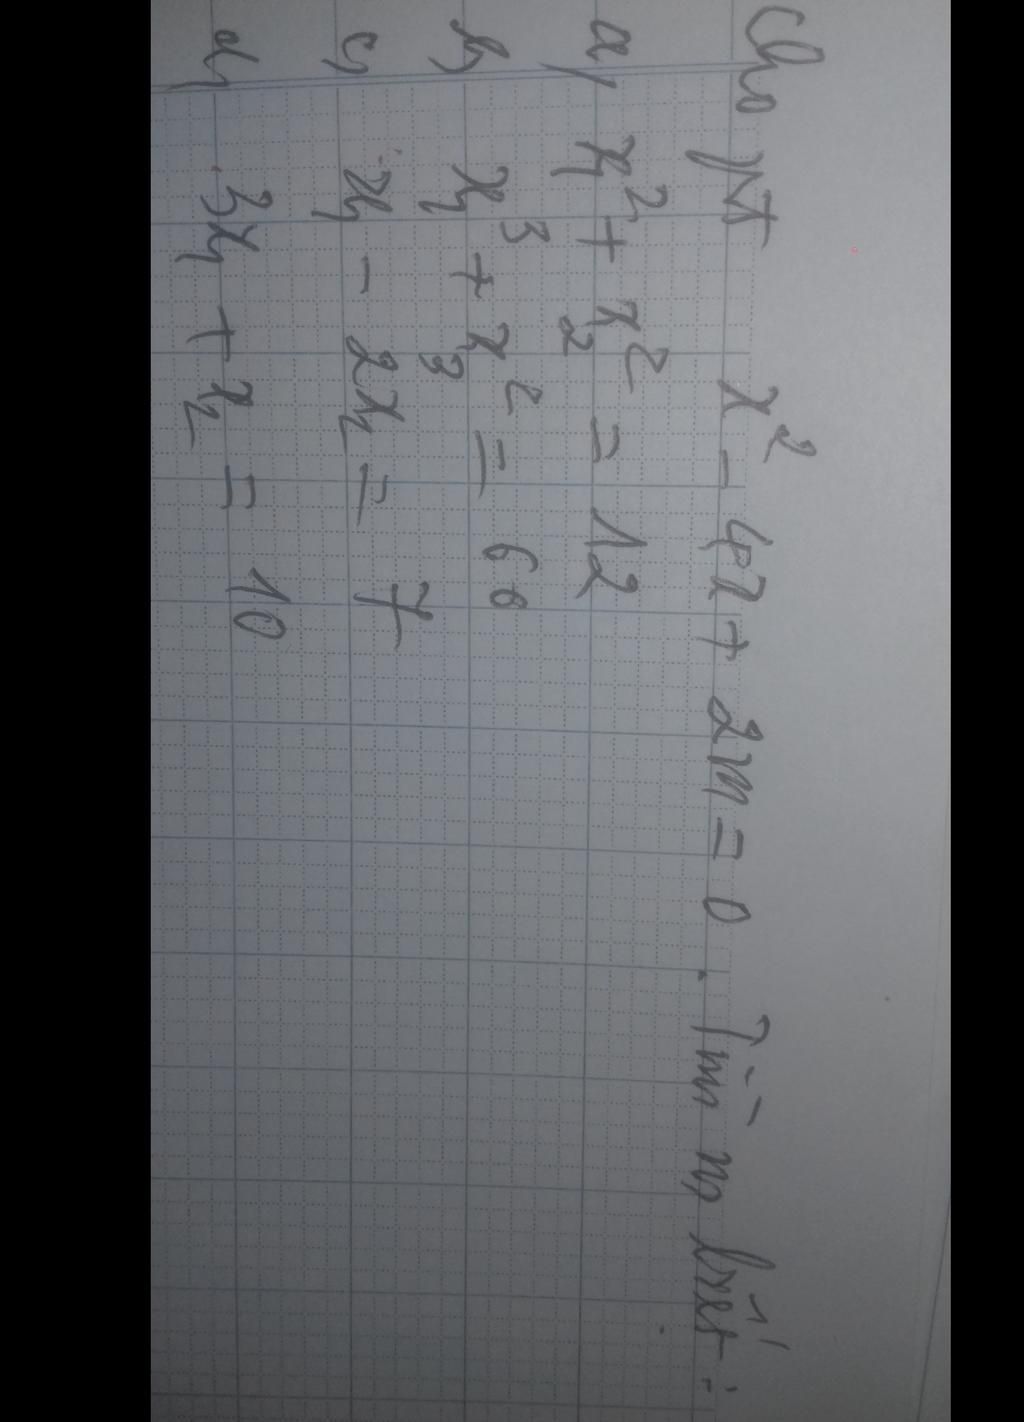 Cho pt x² - 4x + 2m = 0. Tìm m, biết:
a, x₁² + x₂² = 12
b, x₁³ + x₂³ = 60
c, x₁ - 2x₂ = 7
d, 3x₁ + x₂ = 10